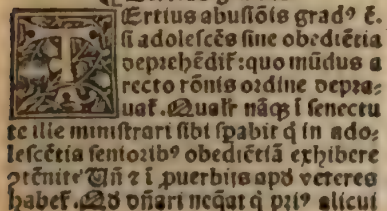 TErtius abusiōis gradꝰ ē.
si adolescēs sine obediētia
deprehēdit̄: quo mūdus a
recto rōnis ordine depra⸗
uat̄. Qualr̄ nāqꝫ ī senectu
te ille ministrari sibi spabit q̄ in ado⸗
lescētia seniorībꝰ obediētiā exhibere
ꝯtēnit Un̄ ⁊ ī puerbijs apd veteres
habet̄. Qd dn̄ari neq̄at q̄ priꝰ alicui